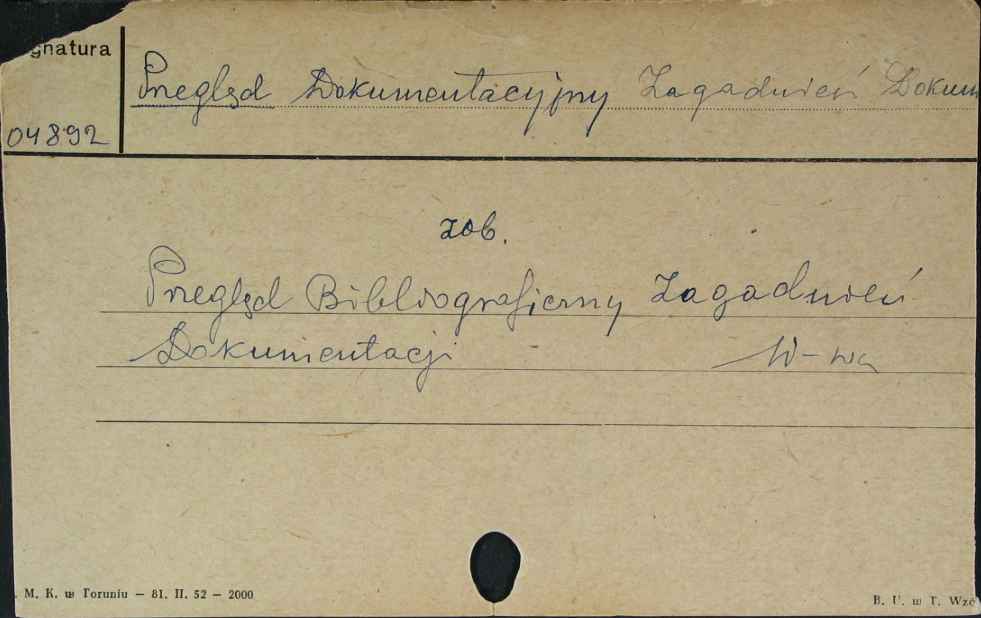 gnatura
Przegląd Dokumentacyjny Zagadnień Dokum
04892
zob.
Przegląd Bibliograficzny Zagadnień
Dokumentacji W-wa
. M. K. w Toruniu – 81. II. 52 – 2000
B. U. w T. Wzó